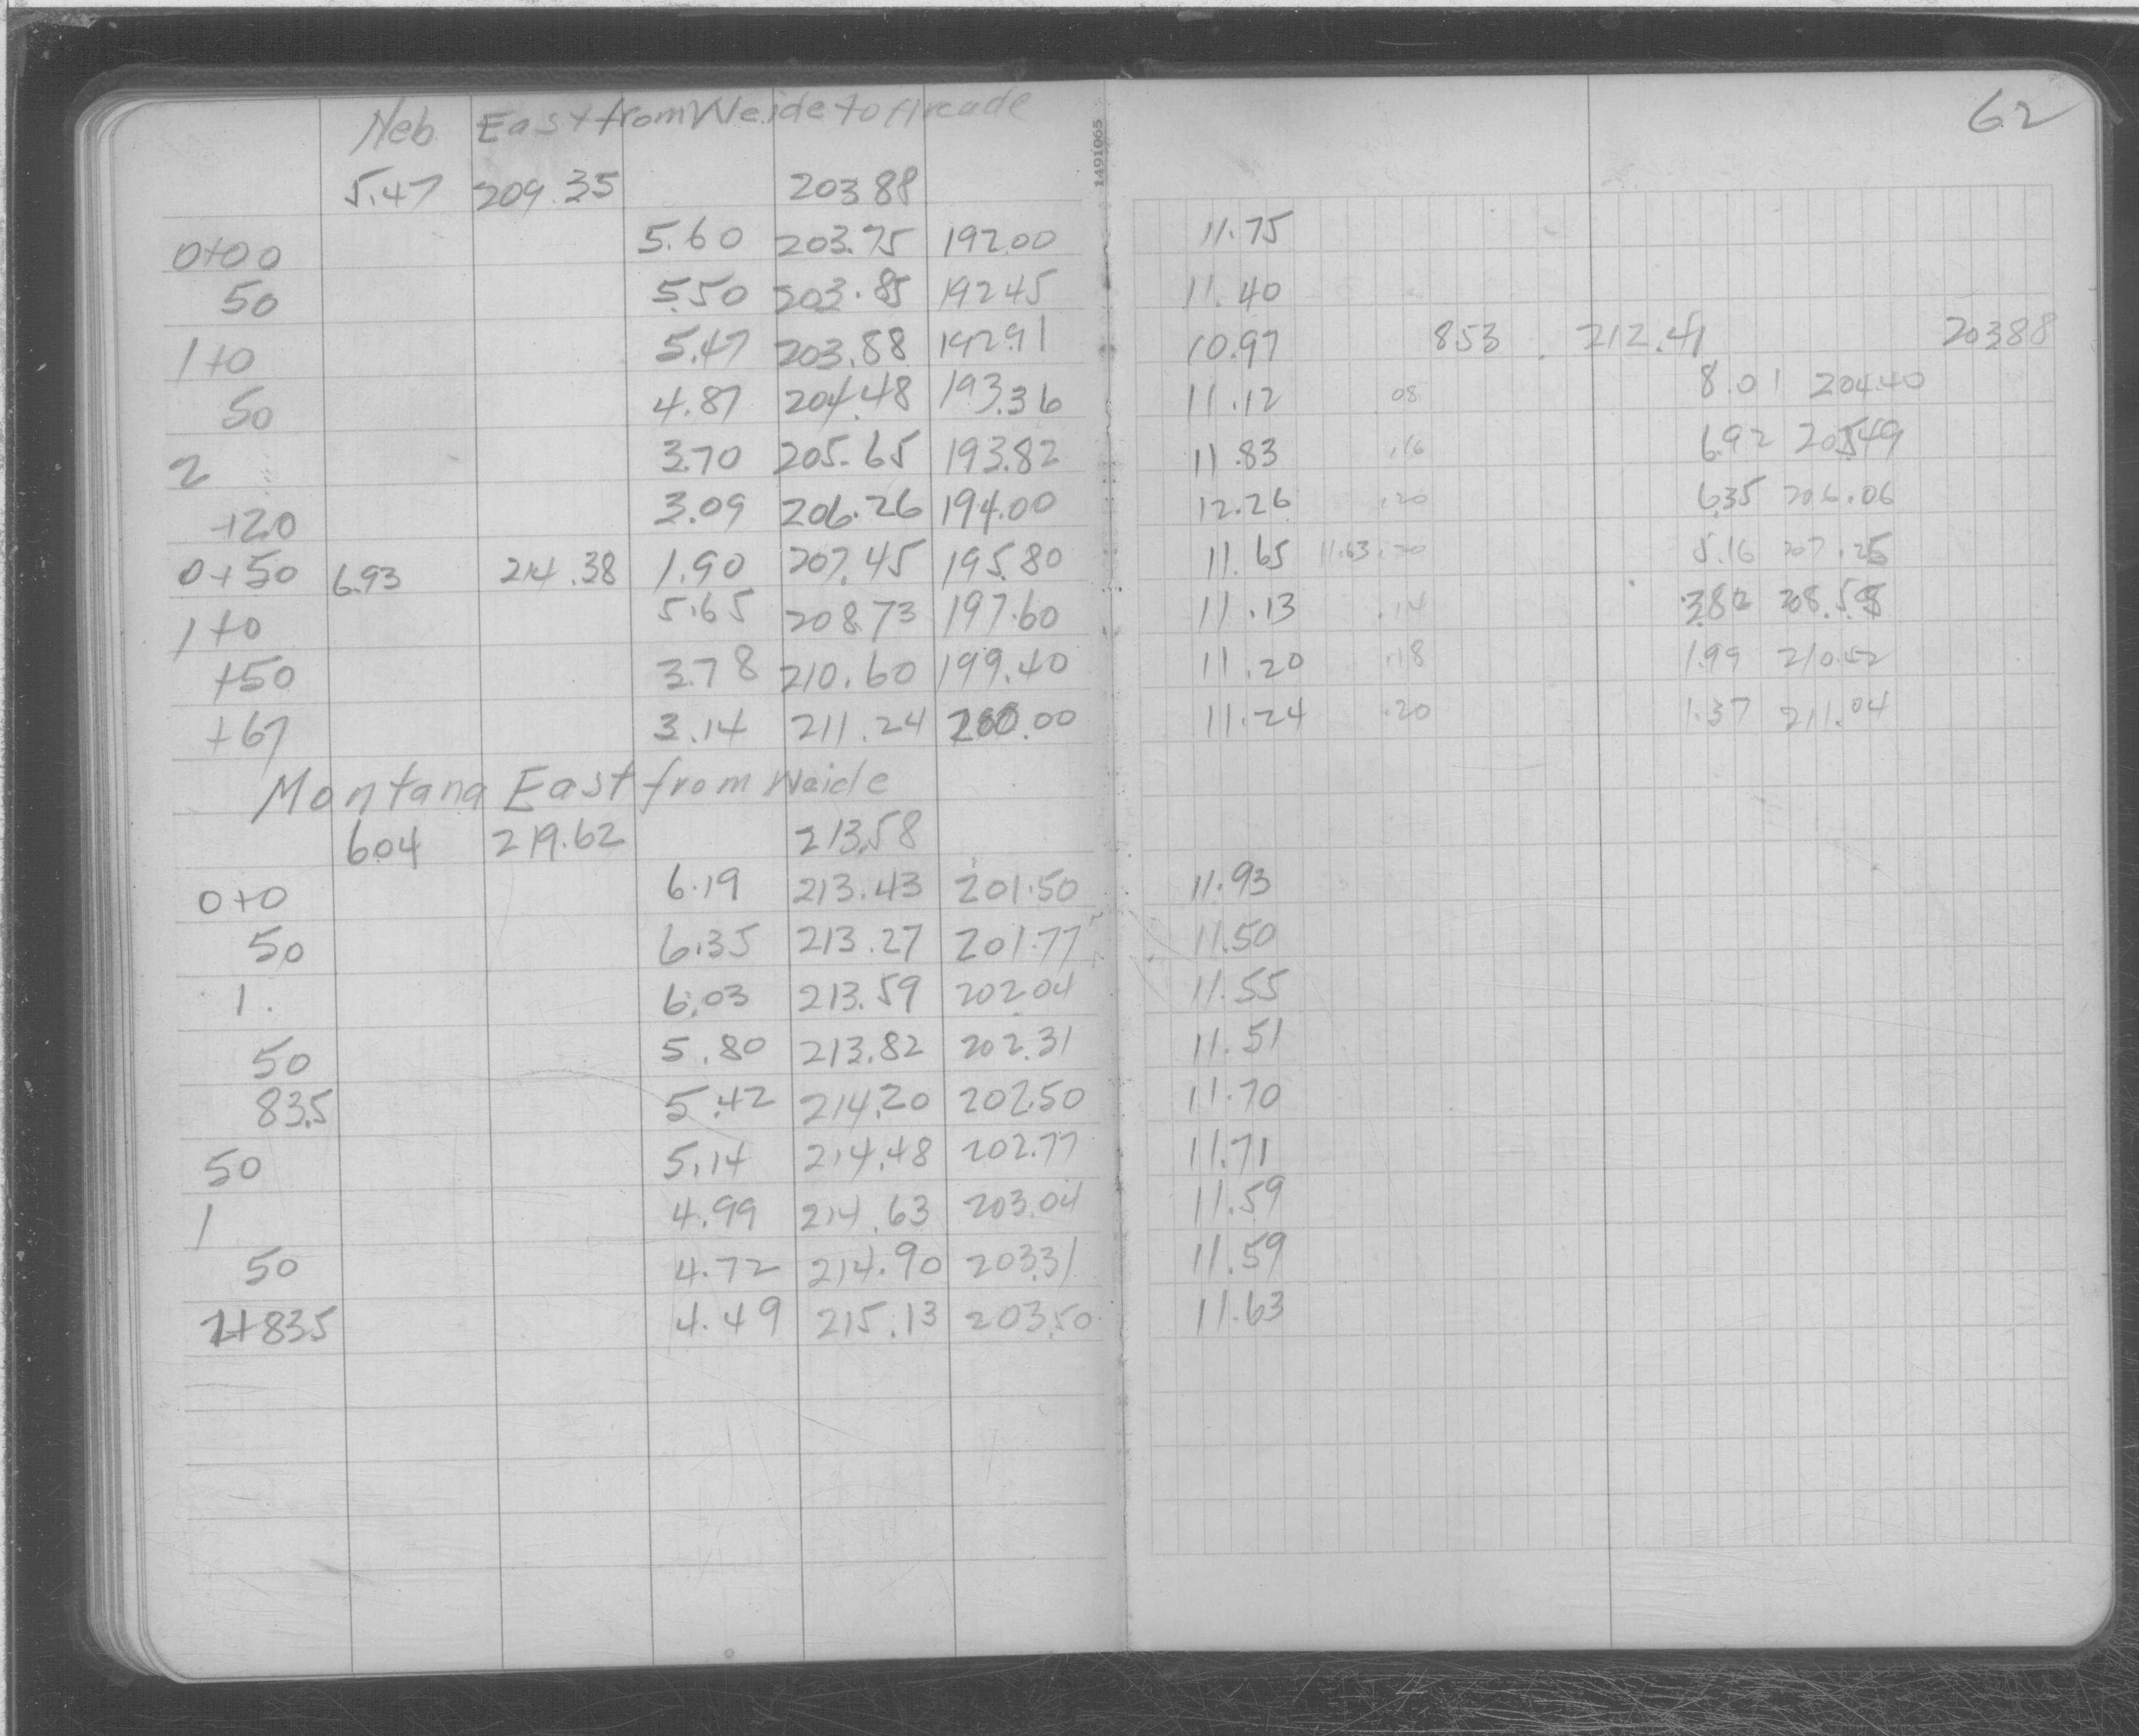 62
Neb East from Weide to Arcade
5.47 209.35 203.88
0+00 5.60 203.75 192.00 11.75
50 5.50 203.85 192.45 11.40
1+0 5.47 203.88 192.91 10.97 8.53 212.41 203.88
50 4.87 204.48 193.36 11.12 .08 8.01 204.40
2 3.70 205.65 193.82 11.83 .16 6.92 205.49
+20 3.09 206.26 194.00 12.26 .20 6.35 206.06
0+50 6.93 214.38 1.90 207.45 195.80 11.65 11.63 .20 5.16 207.25
1+0 5.65 208.73 197.60 11.13 .14 3.82 208.59
+50 3.78 210.60 199.40 11.20 .18 1.99 210.42
+67 3.14 211.24 200.00 11.24 .20 1.37 211.04
Montana East from Weide
6.04 219.62 213.58
0+0 6.19 213.43 201.50 11.93
50 6.35 213.27 201.77 11.50
1. 6.03 213.59 202.04 11.55
50 5.80 213.82 202.31 11.51
83.5 5.42 214.20 202.50 11.70
50 5.14 214.48 202.77 11.71
1 4.99 214.63 203.04 11.59
50 4.72 214.90 203.31 11.59
1+83.5 4.49 215.13 203.50 11.63
1491065